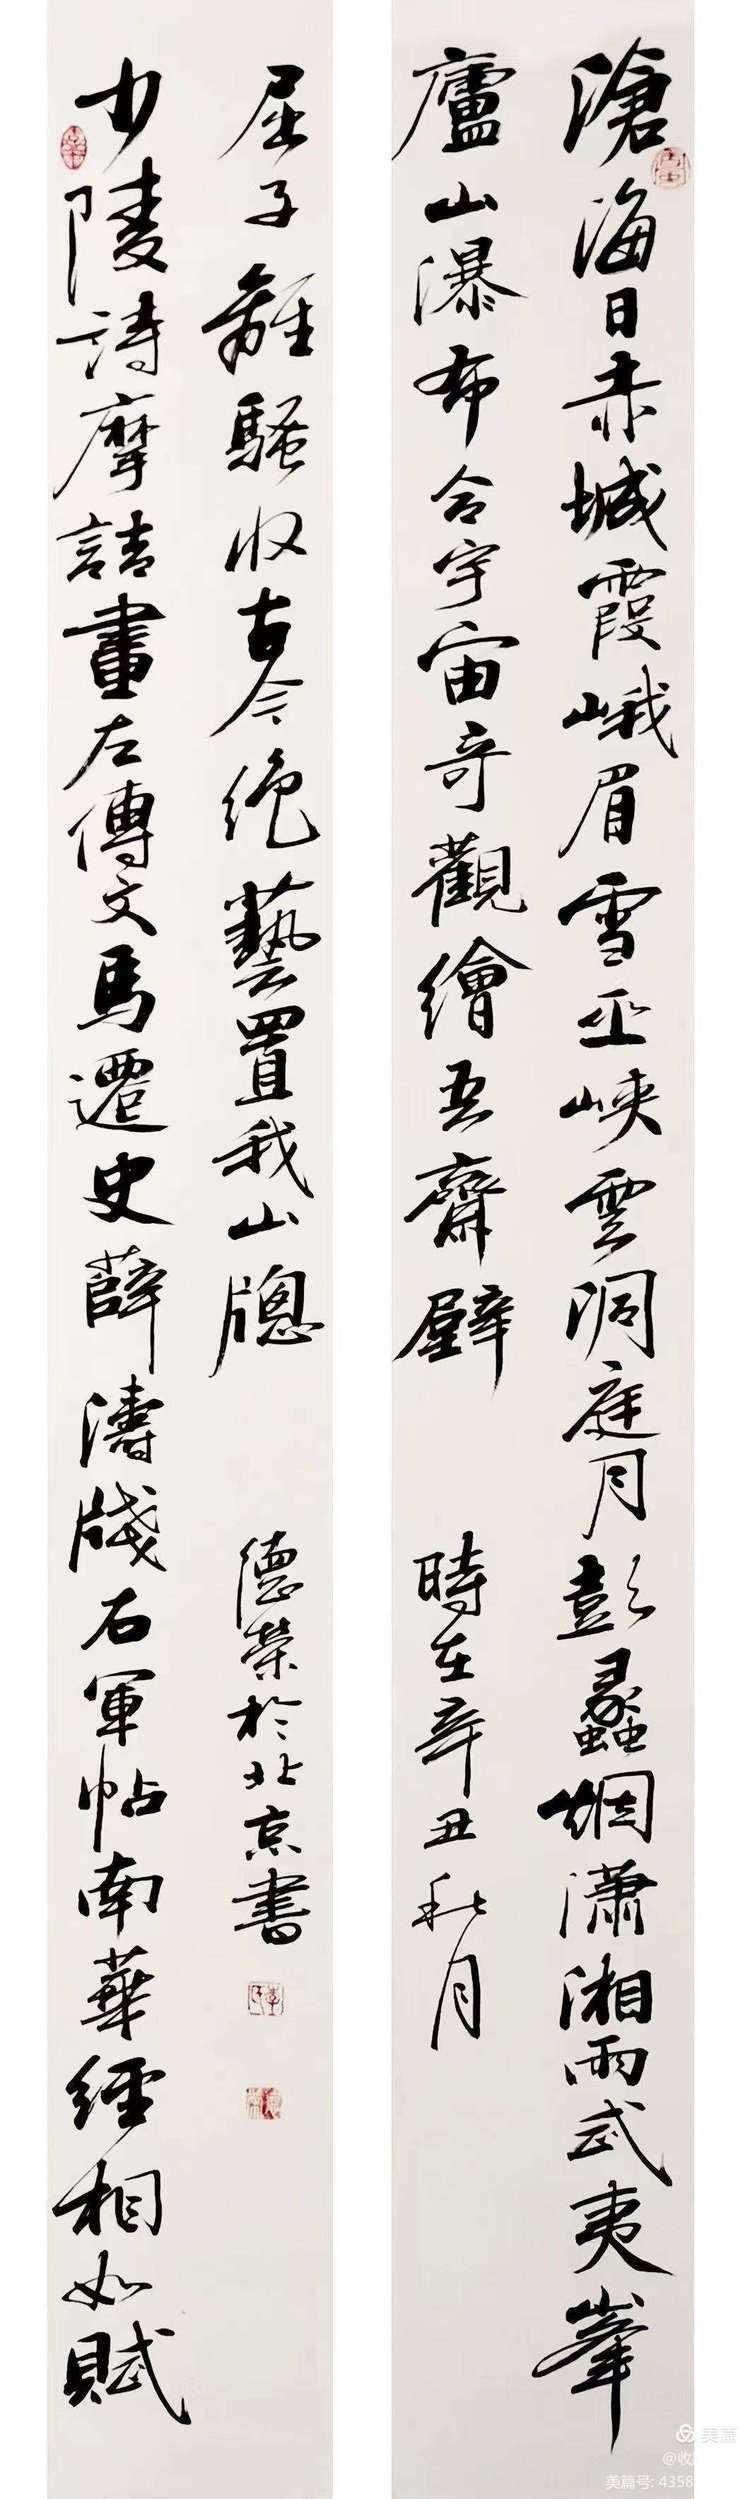 滄海日赤城霞峨眉雪巫峽雲洞庭月彭蠡烟瀟湘雨武夷峯
廬山瀑布合宇宙奇觀繪吾齋壁
時在辛丑秋月
少陵詩摩詰畫左傳文馬遷史薛濤牋右軍帖南華經相如賦
屈子離騷收古今絶藝置我山牎
德榮於北京書
美篇
@收
美篇号: 4358